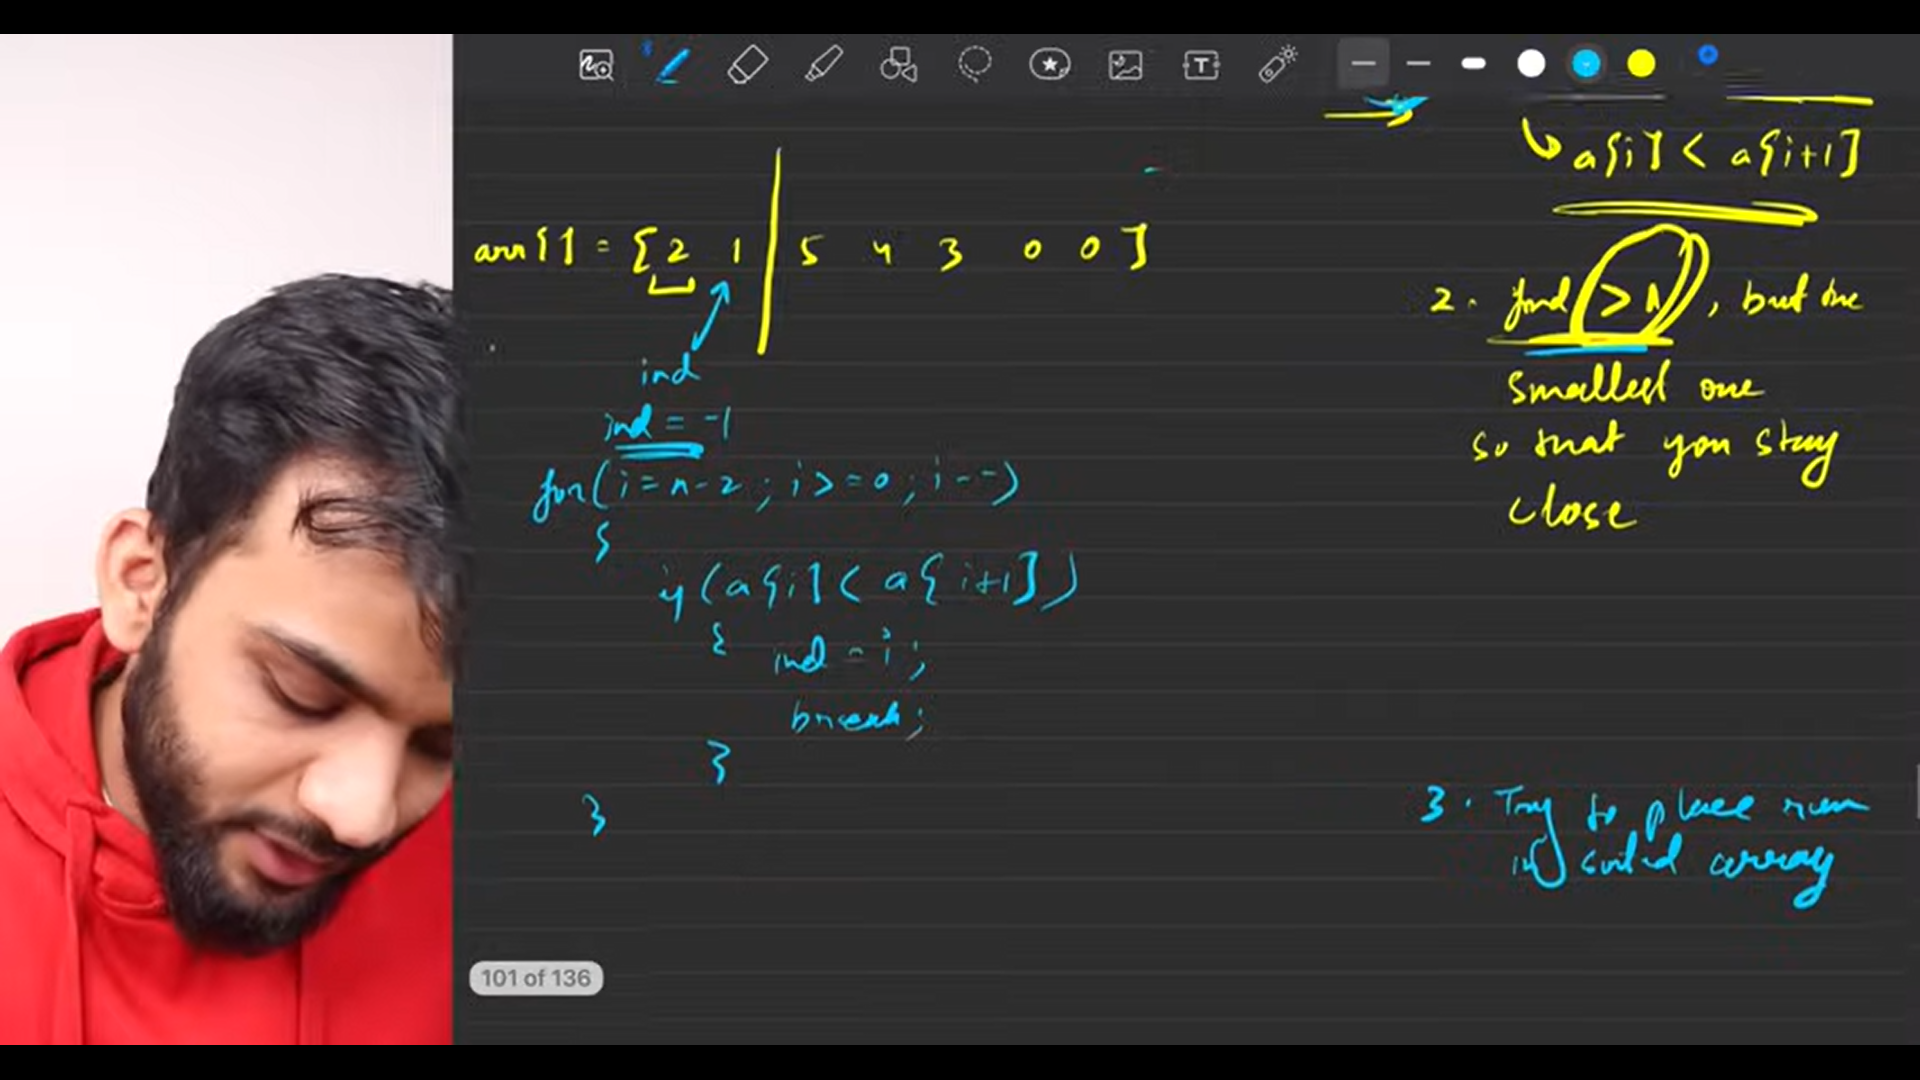 a[i] < a[i+1]
arr[] = [2 1 | 5 4 3 0 0]
ind
ind = -1
for(i=n-2; i>=0; i--)
{
if (a[i] < a[i+1])
{ ind = i;
break;
}
}
2. find > , but the
smallest one
so that you stay
close
3. Try to place rem
in sorted array
101 of 136